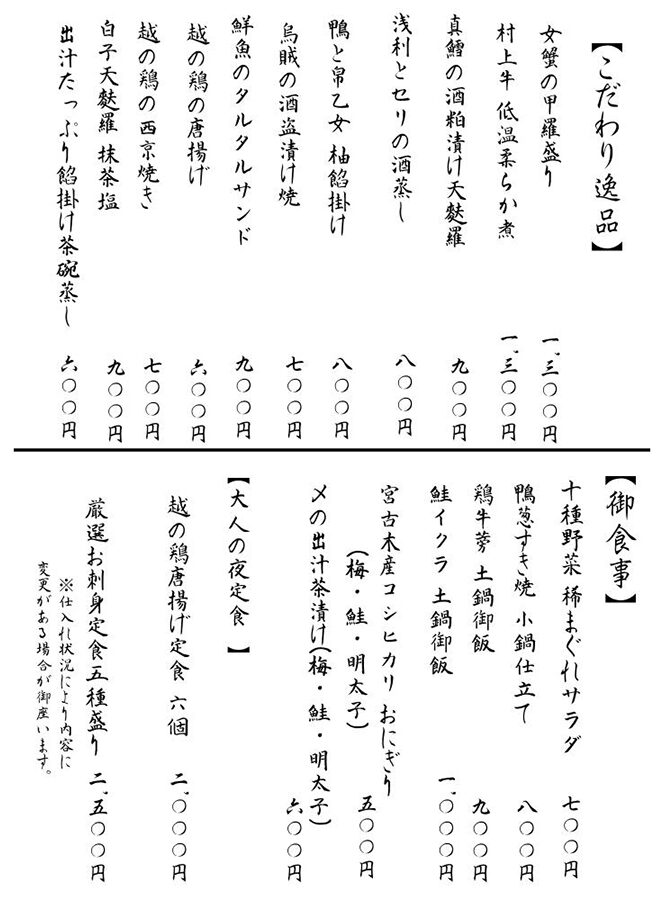 【こだわり逸品】
女蟹の甲羅盛り 一、三〇〇円
村上牛 低温柔らか煮 一、三〇〇円
真鱈の酒粕漬け天麩羅 九〇〇円
浅利とセリの酒蒸し 八〇〇円
鴨と帛乙女 柚餡掛け 八〇〇円
烏賊の酒盗漬け焼 七〇〇円
鮮魚のタルタルサンド 九〇〇円
越の鶏の唐揚げ 六〇〇円
越の鶏の西京焼き 七〇〇円
白子天麩羅 抹茶塩 九〇〇円
出汁たっぷり餡掛け茶碗蒸し 六〇〇円
【御食事】
十種野菜 稀まぐれサラダ 七〇〇円
鴨葱すき焼 小鍋仕立て 八〇〇円
鶏牛蒡 土鍋御飯 九〇〇円
鮭イクラ 土鍋御飯 一、〇〇〇円
宮古木産コシヒカリ おにぎり
(梅・鮭・明太子) 五〇〇円
〆の出汁茶漬け(梅・鮭・明太子) 六〇〇円
【大人の夜定食】
越の鶏唐揚げ定食 六個 二、〇〇〇円
厳選お刺身定食五種盛り 二、五〇〇円
※仕入れ状況により内容に
変更がある場合が御座います。